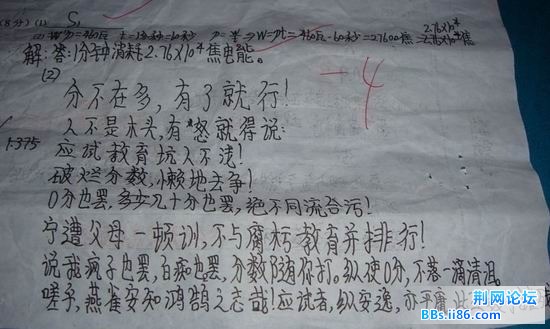 (8分)(1) S₁
2.76×10⁴
(2) W=? P=460瓦 t=1分钟=60秒 P=W/t ⇒ W=Pt=460瓦·60秒=27600焦=2.76×10⁴焦
解:答:1分钟消耗2.76×10⁴焦电能。
(2)
-4
分不在多,有了就行!
人不是木头,有怒就得说:
1375
应试教育坑人不浅!
破烂分数,懒地去争!
0分也罢,多少几十分也罢,绝不同流合污!
宁遭父母一顿训,不与腐朽教育并排行!
说我疯子也罢,白痴也罢,分数随你打。纵使0分,不落一滴清泪。
嗟乎,燕雀安知鸿鹄之志哉!应试者,纵安逸,亦平庸
荆网论坛
BBs.ii86.com